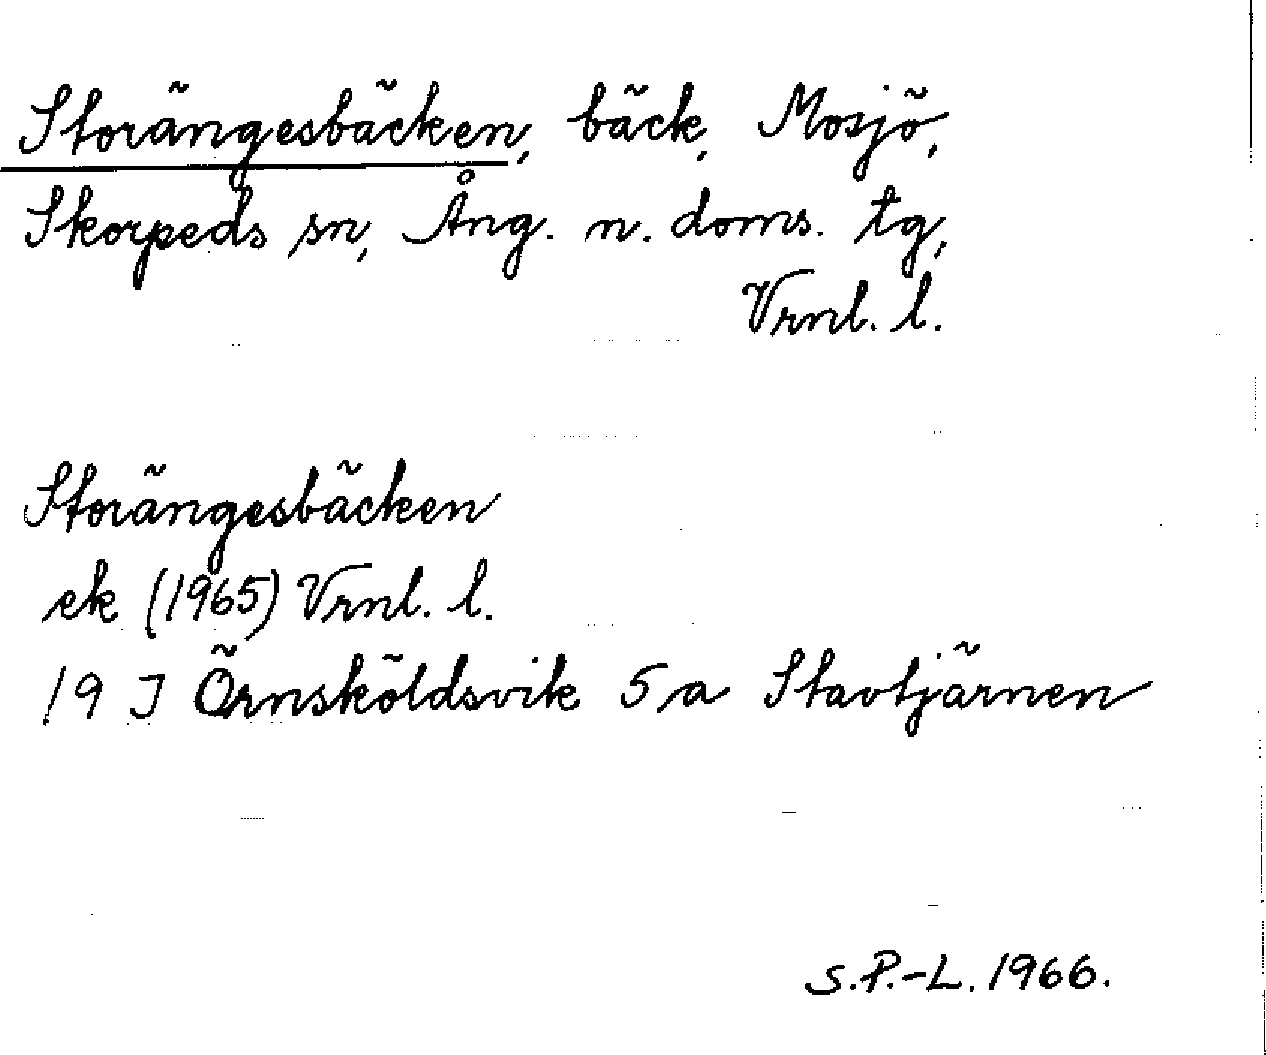 Storängesbäcken, bäck, Mosjö,
Skorpeds sn, Ång. n. doms. tg,
Vrnl. l.
Storängesbäcken
ek (1965) Vrnl. l.
19 J Örnsköldsvik 5 a Stavtjärnen
S.P.-L. 1966.